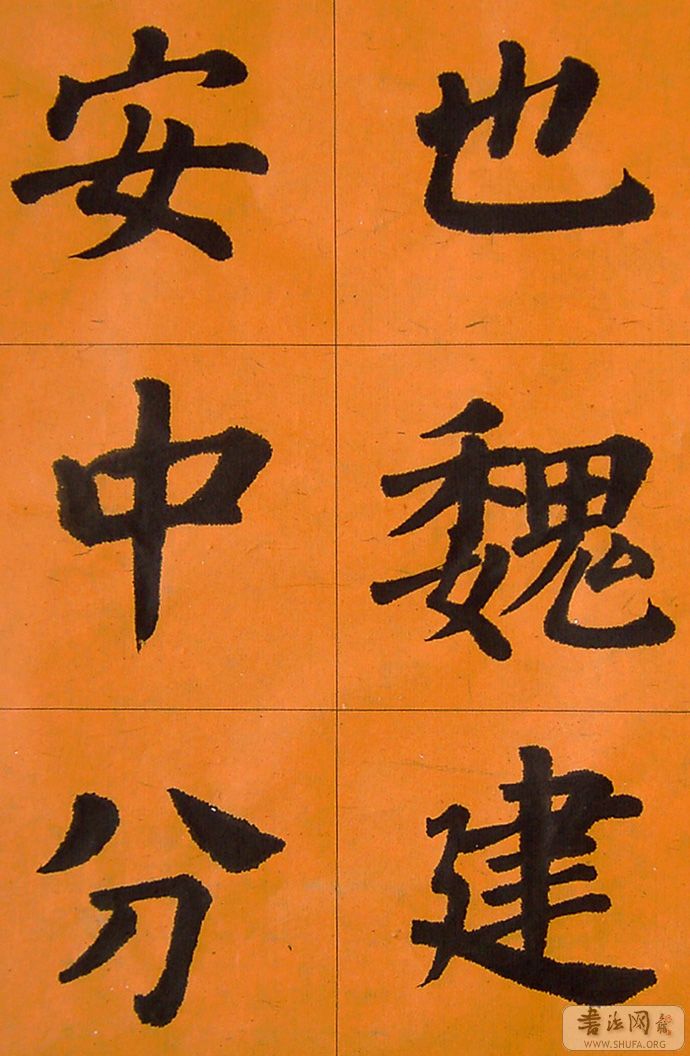 也魏建
安中分
書法网
WWW.SHUFA.ORG